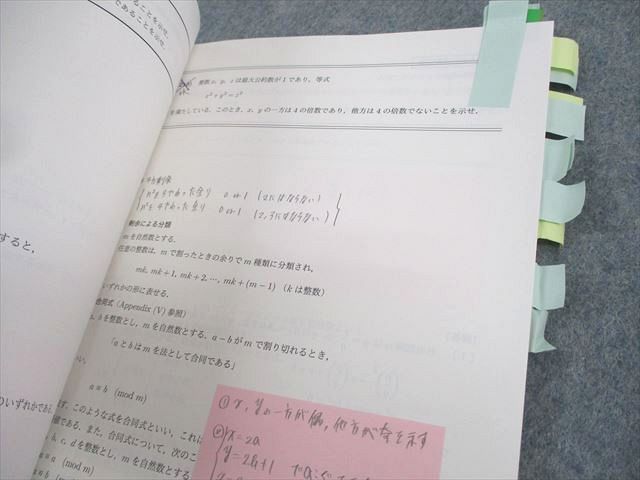 ることを示せ.
であることを示せ.
整数 x, y, z は最大公約数が1であり, 等式
x² + y² = z²
を満たしている. このとき, x, y の一方は4の倍数であり, 他方は4の倍数でないことを示せ.
n²を3でわった余り 0 or 1 (2にはならない)
n²を4でわった余り 0 or 1 (2,3にはならない)
剰余による分類
mを自然数とする.
任意の整数は, mで割ったときの余りでm種類に分類され,
mk, mk+1, mk+2, …, mk+(m−1) (kは整数)
いずれかの形に表せる.
すると,
合同式 (Appendix (V) 参照)
a, bを整数とし, mを自然数とする. a−bがmで割り切れるとき,
「aとbはmを法として合同である」
いい,
a≡b (mod m)
のいずれかである.
す. このような式を合同式といい, これは
値である. また, 合同式について, 次のこ
b, c, dを整数とし, mを自然数とする
≡a (mod m)
≡b (mod m)
① x, yの一方が偶, 他方が奇を示す
②
x=2a
y=2b+1